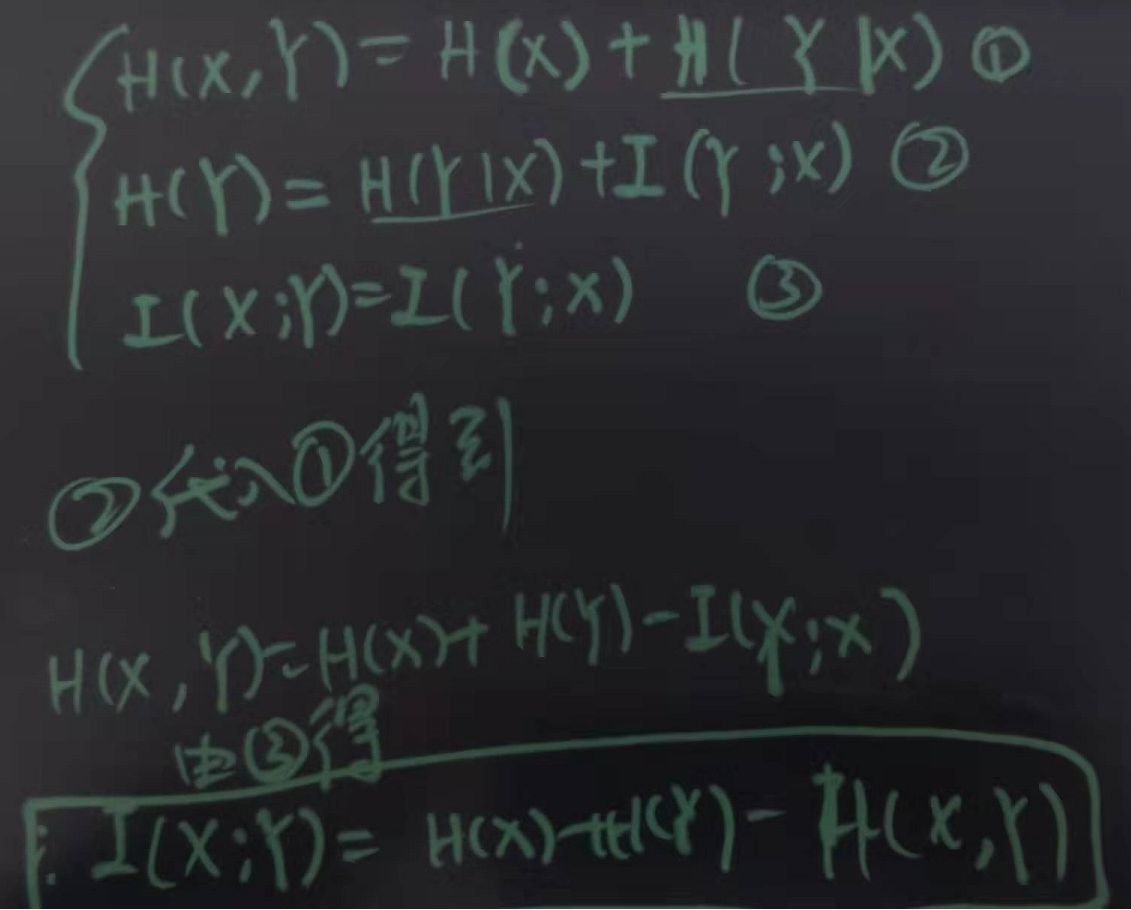 H(X,Y)=H(X)+H(Y|X) ①
H(Y)=H(Y|X)+I(Y;X) ②
I(X;Y)=I(Y;X) ③
②代入①得到
H(X,Y)=H(X)+H(Y)-I(Y;X)
由③得
∴ I(X;Y)=H(X)+H(Y)-H(X,Y)